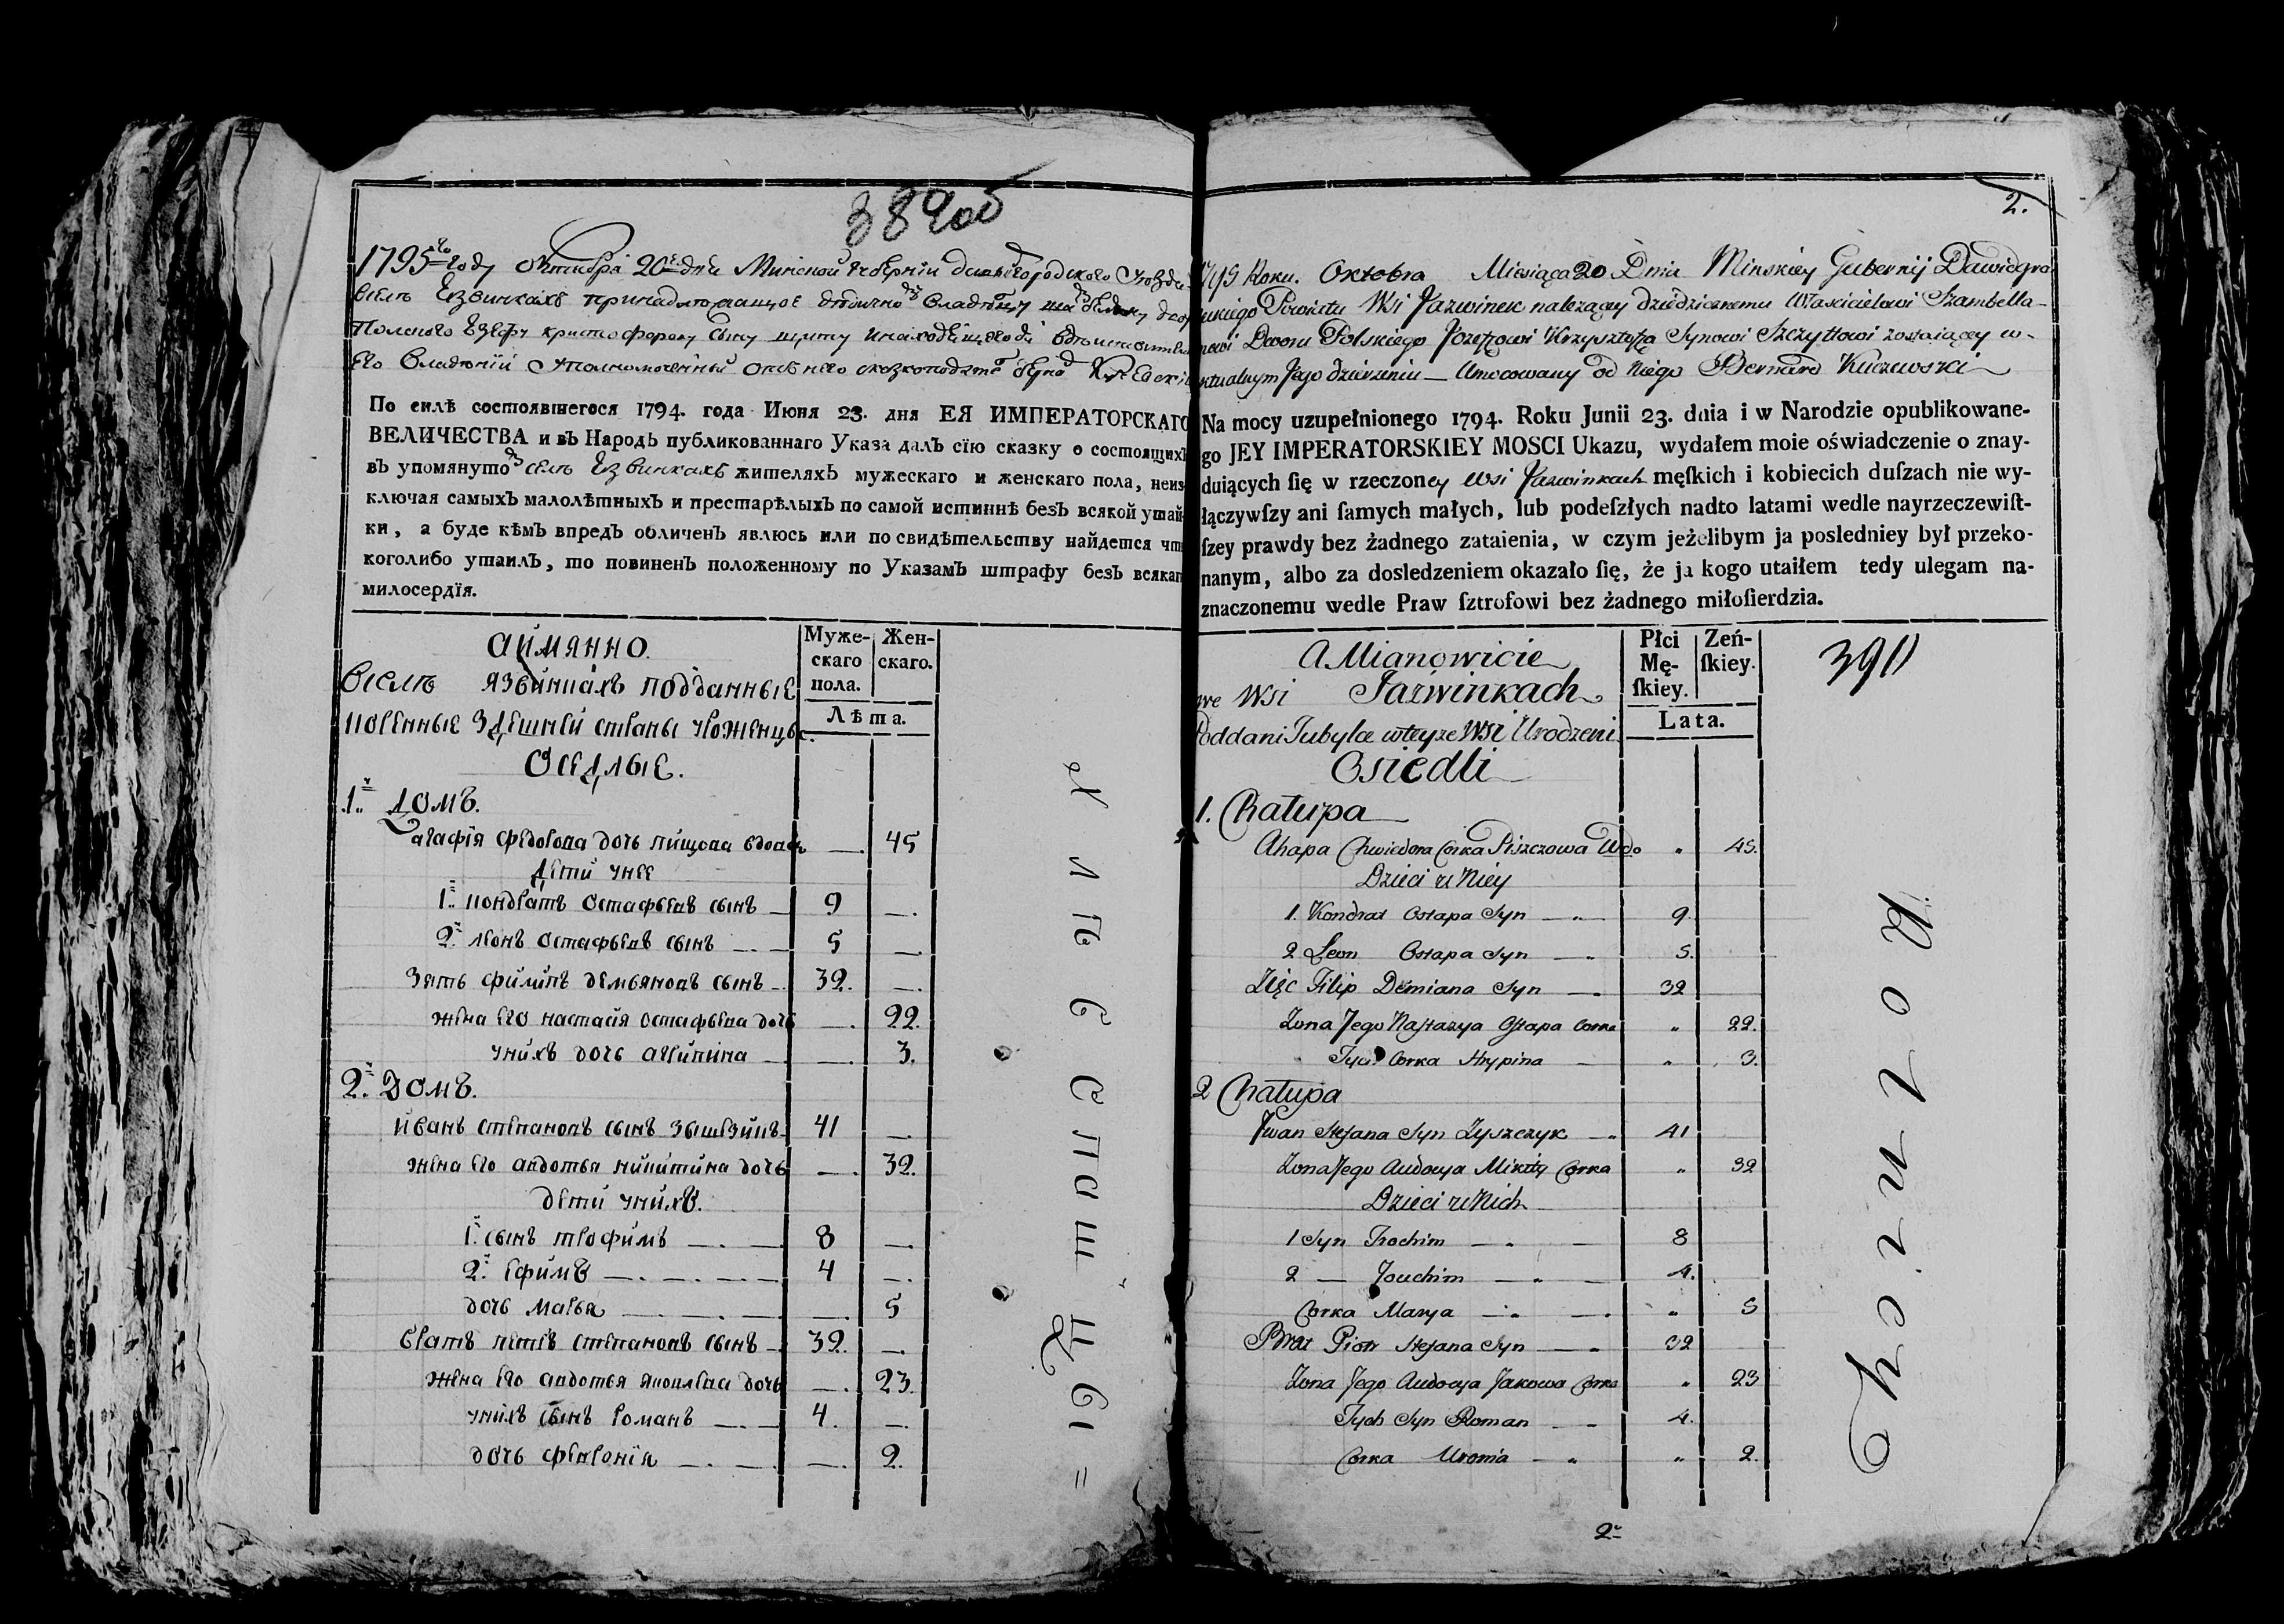 389об
1795го году Октября 20го дня Минской Губернии Давыдгородского Уезда
Селе Езвинкахъ
Полского Езефу кристофорову сыну щиту
Его Владении Уполномоченный отъ него
По силѣ состоявшегося 1794. года Июня 23. дня ЕЯ ИМПЕРАТОРСКАГО
ВЕЛИЧЕСТВА и въ Народѣ публикованнаго Указа далъ сїю сказку о состоящихъ
въ упомянуто селе Езвинкахъ жителяхъ мужескаго и женскаго пола, неиз-
ключая самыхъ малолѣтныхъ и престарѣлыхъ по самой истиннѣ безъ всякой утай-
ки, а буде кѣмъ впредь обличенъ явлюсь или по свидѣтельству найдется что
коголибо утаилъ, то повиненъ положенному по Указамъ штрафу безъ всякаго
милосердїя.
аймянно
Муже-
скаго
пола.
Жен-
скаго.
Лѣта.
Вселе язвинкахъ подданные
коренные здешней страны уроженцы.
Оседлые.
1й домъ.
агафїя федорова дочь пищова вдова —. 45
дети у нее
1й кондратъ остафьевъ сынъ — 9 —.
2й леонъ остафьевъ сынъ — 5 —.
зять филипъ демьяновъ сынъ — 32. —.
жена его настасїя остафьева дочь —. 22.
у нихъ дочь агрипина — —. 3.
2й домъ.
иванъ степановъ сынъ зыщыкъ 41 —.
жена его авдотья никитина дочь —. 32.
дети у нихъ.
1й сынъ трофимъ —. — 8 —.
2й ефимъ —. —. —. — 4 —.
дочь марья —. —. —. 5
братъ петръ степановъ сынъ — 32. —.
жена его авдотья яковлева дочь —. 23.
у нихъ сынъ романъ —. — 4. —.
дочь февронїя —. —. —. 2.
2.
1795 Roku. Oktobra Miesiąca 20 Dnia Minskiey Gubernij Dawidgro
dzkiego Powiatu Wsi Jazwinek należącey dziedzicznemu Właścicielowi Szambella-
nowi Dworu Polskiego Jozefowi Krzysztofa Synowi Szczyttowi zostaiącey w-
aktualnym Jego dzierzeniu — Umocowany od Niego Bernard Kuczewski
Na mocy uzupełnionego 1794. Roku Junii 23. dnia i w Narodzie opublikowane-
go JEY IMPERATORSKIEY MOSCI Ukazu, wydałem moie oświadczenie o znay-
duiących ſię w rzeczoney Wsi Jazwinkach męſkich i kobiecich duſzach nie wy-
łączywſzy ani ſamych małych, lub podeſzłych nadto latami wedle nayrzeczewiſt-
ſzey prawdy bez żadnego zataienia, w czym jeżelibym ja posledniey był przeko-
nanym, albo za dosledzeniem okazało ſię, że ja kogo utaiłem tedy ulegam na-
znaczonemu wedle Praw ſztrofowi bez żadnego miłoſierdzia.
A Mianowicie
Płci
Mę-
ſkiey.
Zeń-
ſkiey.
Lata.
391
we Wsi Jazwinkach
Poddani Tubylce w teyze Wsi Urodzeni
Osiedli
1. Chałupa
Ahapa Chwiedora Corka Piszczowa Wdo „ 45.
Dzieci u Niey
1. Kondrat Ostapa Syn — „ — 9.
2 Leon Ostapa Syn — „ 5.
Zięc Filip Demiana Syn — „ 32
Zona Jego Nastazya Ostapa Corka „ 22.
Tych Corka Hrypina — „ 3.
2 Chałupa
Jwan Stefana Syn Zyszczyk — „ 41
Zona Jego Audocya Mikity Corka „ 32
Dzieci u Nich
1 Syn Trochim — „ — 8
2 — Jouchim — „ — 4.
Corka Marya — „ — „ 5
Brat Piotr Stefana Syn — „ 32
Zona Jego Audocya Jakowa Corka „ 23
Tych Syn Roman — „ 4.
Corka Uronia — „ „ 2.
2й